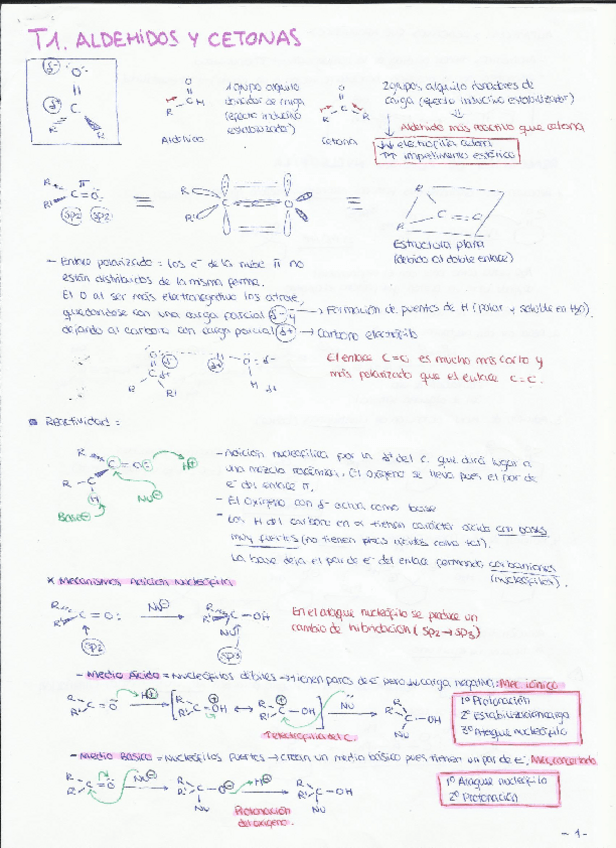 T1. ALDEHIDOS Y CETONAS
Aldehído
1 grupo alquilo
donador de carga
(efecto inductivo
estabilizador)
Cetona
2 grupos alquilo donadores de
carga (efecto inductivo estabilizador)
Aldehído más reactivo que cetona
↓↓ electrofilia
↑↑ impedimento estérico
R
R'
C=O:
sp2 sp2
≡
=
Estructura plana
(debido al doble enlace)
- Enlace polarizado = los e⁻ de la nube π no
están distribuidos de la misma forma.
El O al ser más electronegativo los atrae,
quedándose con una carga parcial δ- y → Formación de puentes de H (polar y soluble en H₂O).
dejando al carbono con carga parcial δ+ → Carbono electrófilo
El enlace C=O es mucho más corto y
más polarizado que el enlace C=C.
Reactividad:
H⊕
Nu⊖
Base⊖
- Adición nucleofílica por la δ+ del C. que dará lugar a
una mezcla racémica. El oxígeno se lleva pues el par de
e⁻ del enlace π.
- El oxígeno con δ- actúa como base
- Los H del carbono en α tienen carácter ácido con bases
muy fuertes (no tienen
La base deja el par de e⁻ del enlace formando carbaniones
(nucleófilos).
* Mecanismos Adición Nucleófila
sp2
Nu⊖
sp3
En el ataque nucleófilo se produce un
cambio de hibridación (sp2 → sp3)
- Medio Ácido = Nucleófilos débiles → tienen pares de e⁻ pero no carga negativa: Mec iónico
1º Protonación
2º Estabilización carga
3º Ataque nucleófilo
- Medio Básico = Nucleófilos fuertes → crean un medio básico pues tienen un par de e⁻. Mec concertado
1º Ataque nucleófilo
2º Protonación
Protonación
del oxígeno.
- 1 -